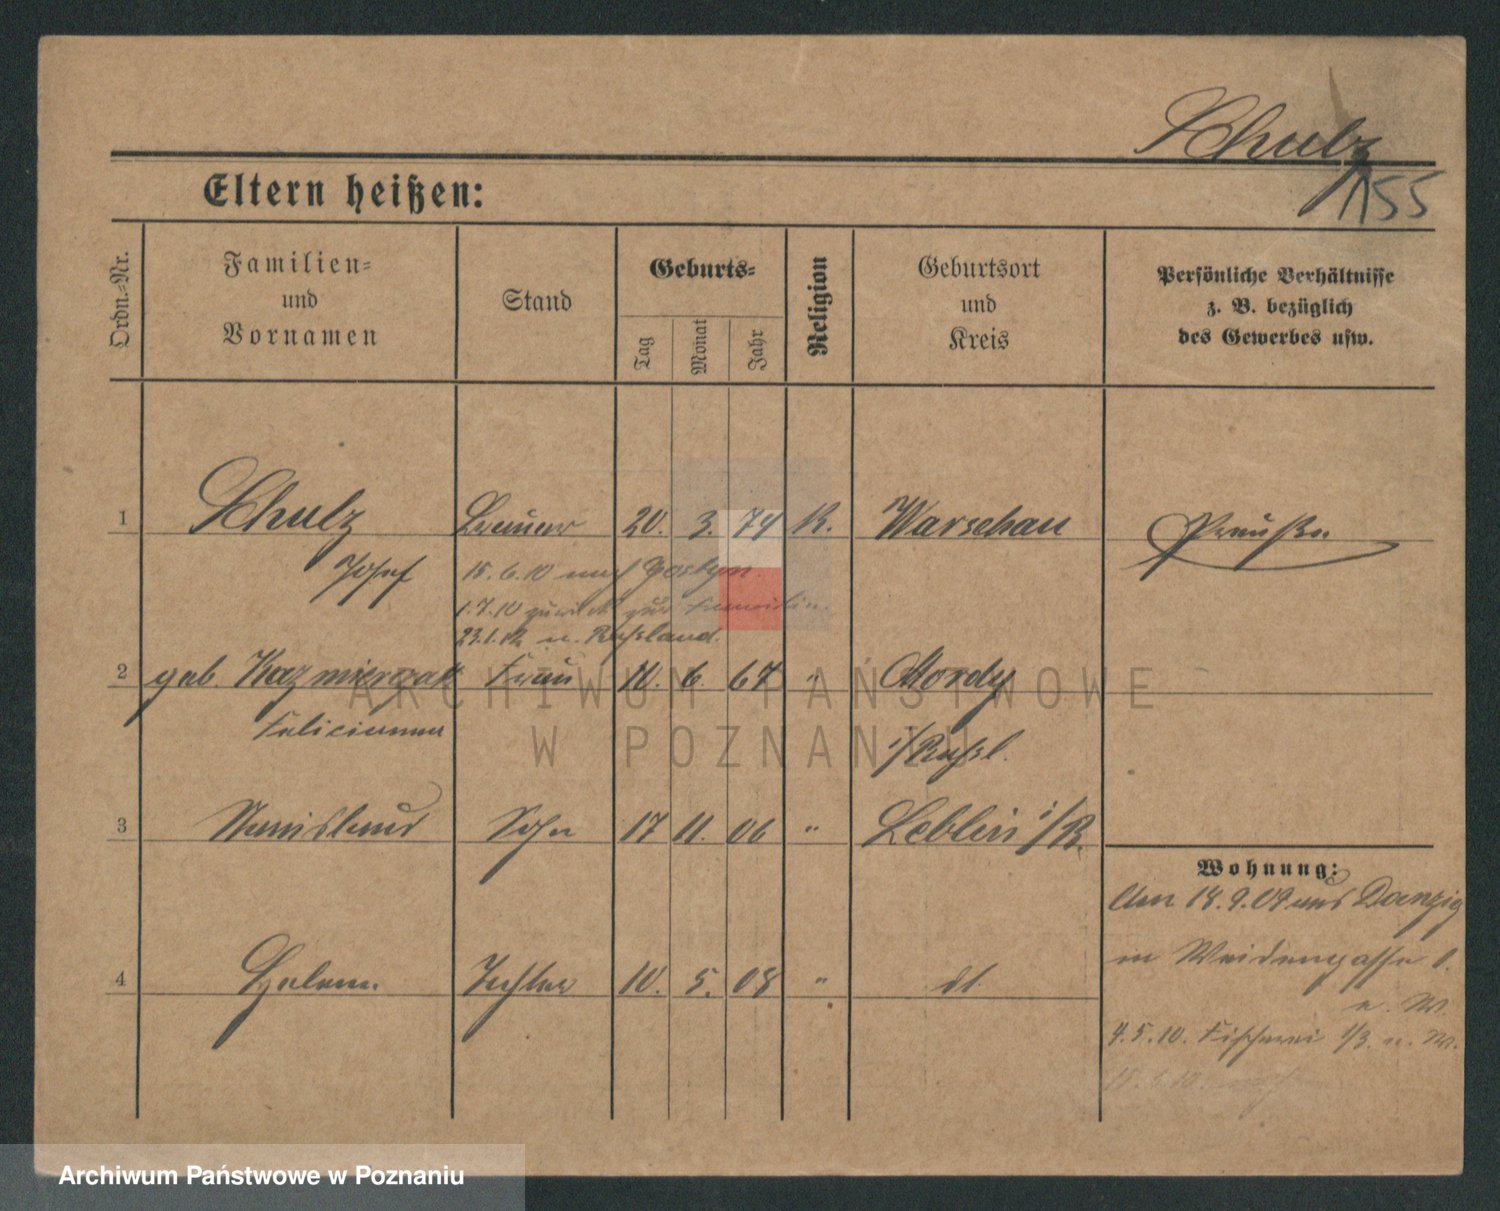 Schulz
155
Eltern heißen:
Ordn.-Nr.
Familien-
und
Vornamen
Stand
Geburts-
Tag
Monat
Jahr
Religion
Geburtsort
und
Kreis
Persönliche Verhältnisse
z. B. bezüglich
des Gewerbes usw.
1 Schulz Brauer 20. 3. 74 K. Warschau Preuße.
Josef 15.6.10 nach Gostyn.
1.7.10 zurück zur Familie.
23.1.12 n. Rußland.
2 geb. Kazmierczak Frau 10. 6. 67 " Mordy
Felicianna i/Rußl.
3 Stanislaus Sohn 17 11. 06 " Leblin i/R.
Wohnung:
Am 18.9.09 aus Danzig
in Weidengasse 1.
4 Helene. Tochter 10. 5. 08 " dt.
n. W.
4.5.10. Fischerei 1/3. n. W.
ARCHIWUM PAŃSTWOWE
W POZNANIU
Archiwum Państwowe w Poznaniu